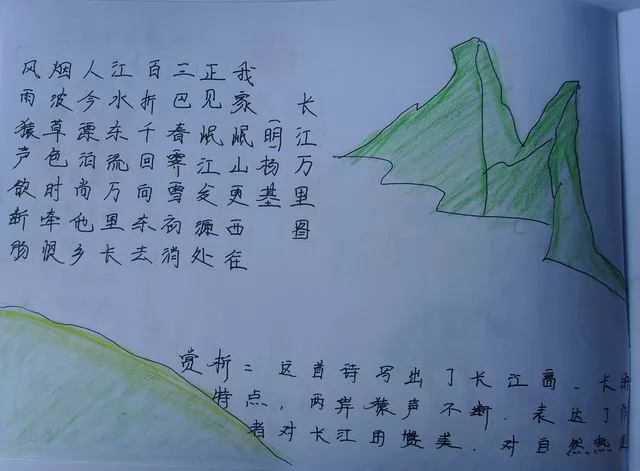 长江万里图
[明]杨基
我家岷山更西在
正见岷江发源处
三巴春霁雪初消
百折千回向东去
江水东流万里长
人今漂泊尚他乡
烟波草色时牵恨
风雨猿声欲断肠
赏析：这首诗写出了长江高、长的
特点，两岸猿声不断．表达了作
者对长江的赞美．对自然热爱